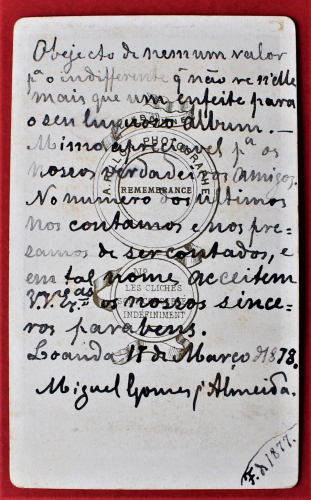 Obejecto de nemum valor
pª o indifferente q̃ não ve n'elle
mais que um enfeite para
o seu luxuozo album. —
Mimo apreciavel pª os
nossos verdadeiros amigos.
PHOTOGRAPHE
REMEMBRANCE
No numero dos ultimos
nos contamos e nos pre-
samos de ser contados, e
em tal nome acceitem
V.V. Ex.ᶜᵃˢ os nossos since-
ros parabens.
LES CLICHÉS
INDÉFINIMENT
Loanda 17 de Março d 1878.
Miguel Gomes d'Almeida.
F. d 1877.